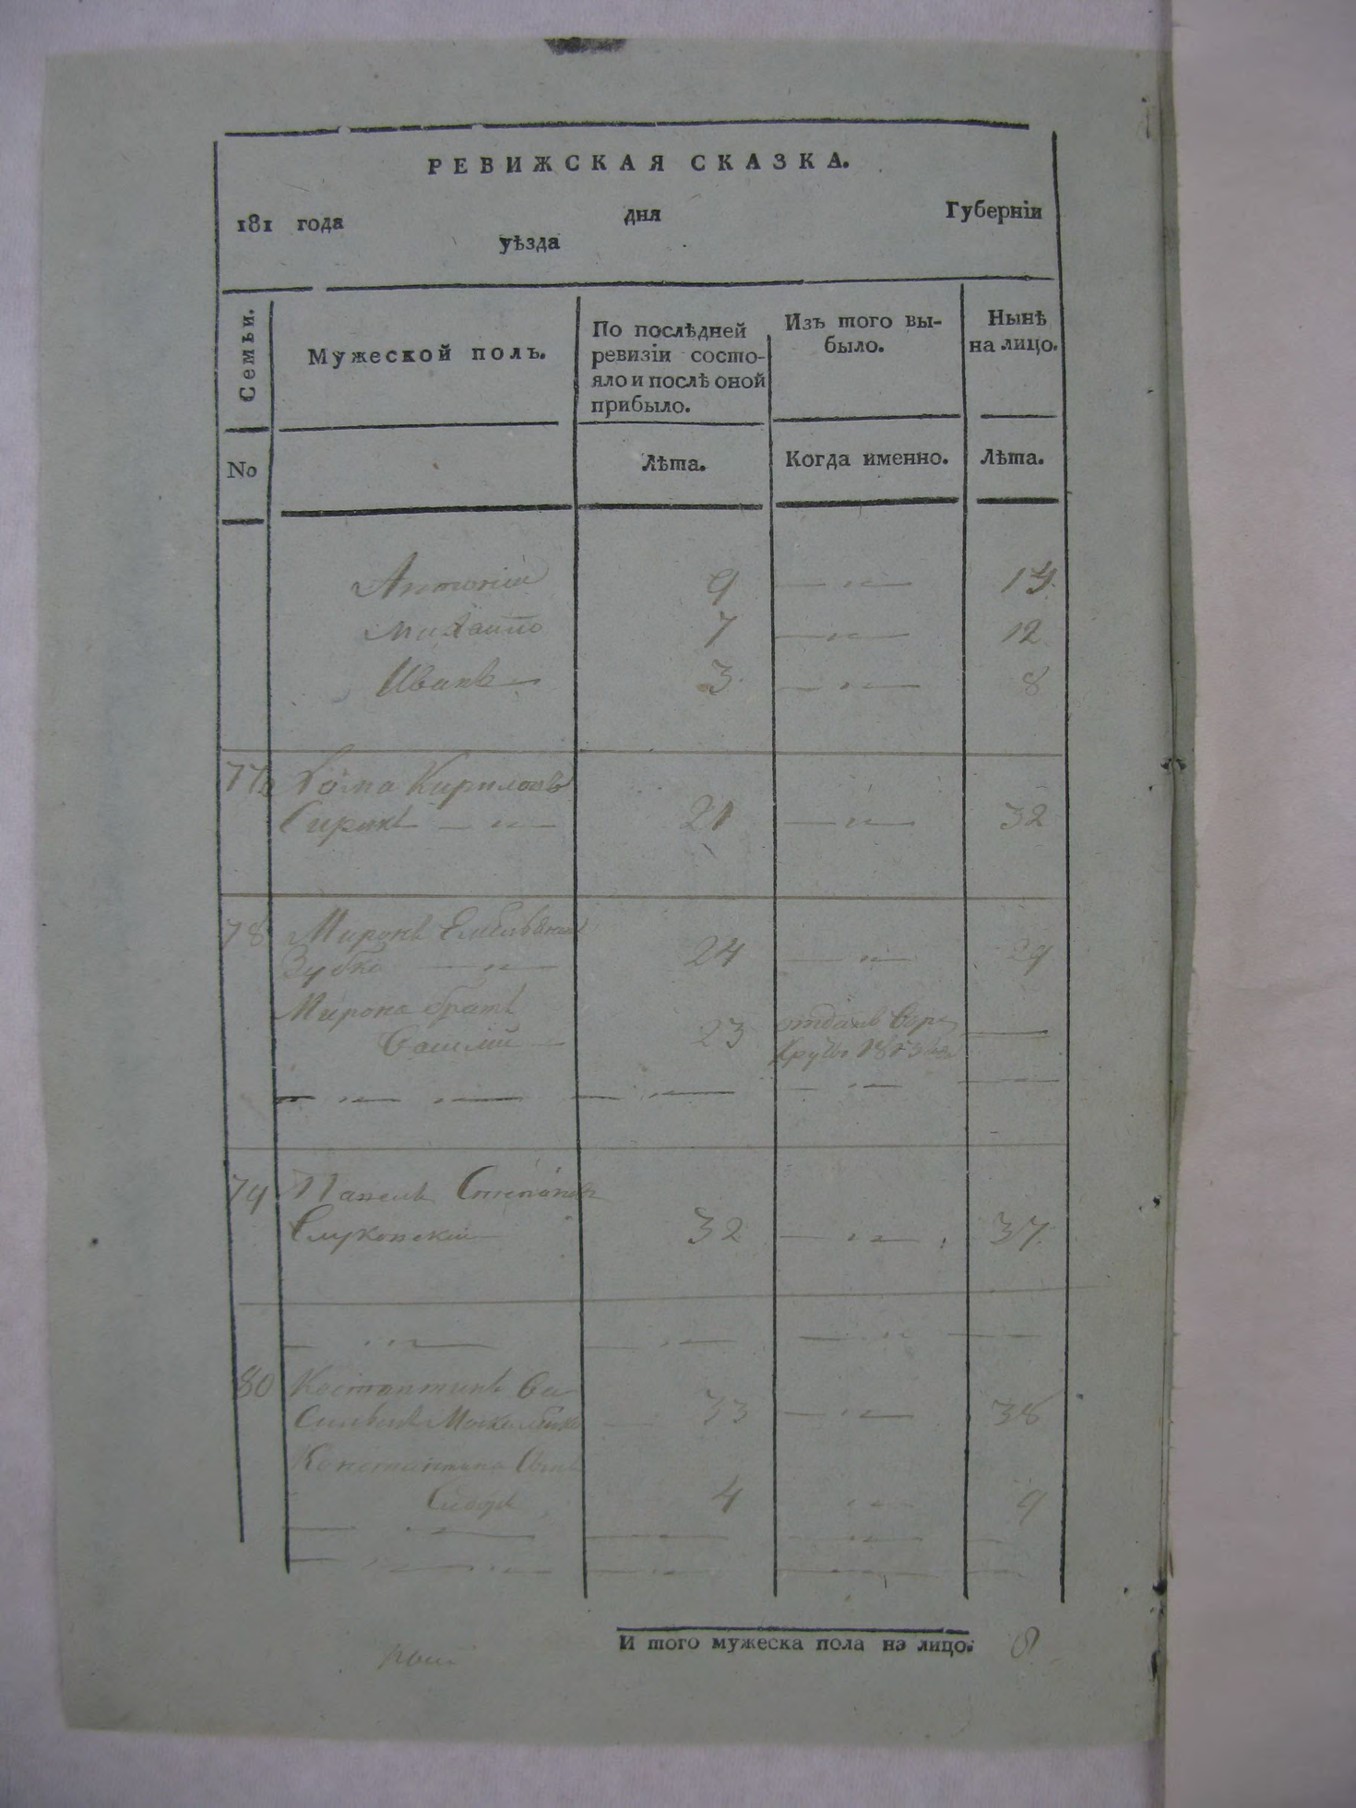 РЕВИЖСКАЯ СКАЗКА.
181 года дня Губерніи
уѣзда
Семьи.
Мужеской полъ.
По послѣдней
ревизіи состо-
яло и послѣ оной
прибыло.
Изъ того вы-
было.
Нынѣ
на лицо.
No
Лѣта.
Когда именно.
Лѣта.
Антоній 9 — „ — 14.
Михайло 7 — „ — 12
Иванъ 3. — „ — 8
77 Хома Кириловъ
Сирикъ — „ — 21 — „ — 32
78 Миронъ Емельяновъ
Зубко — „ — 24 — „ — 29
Мирона братъ
Василій — 23 отданъ в
1813 —
79 Павелъ Степановъ
Слуковскій 32 — „ — 37.
80 Костантинъ Ва
сильевъ 33 — „ — 38
Константина сынъ
4 „ 9
И того мужеска пола на лицо. 8